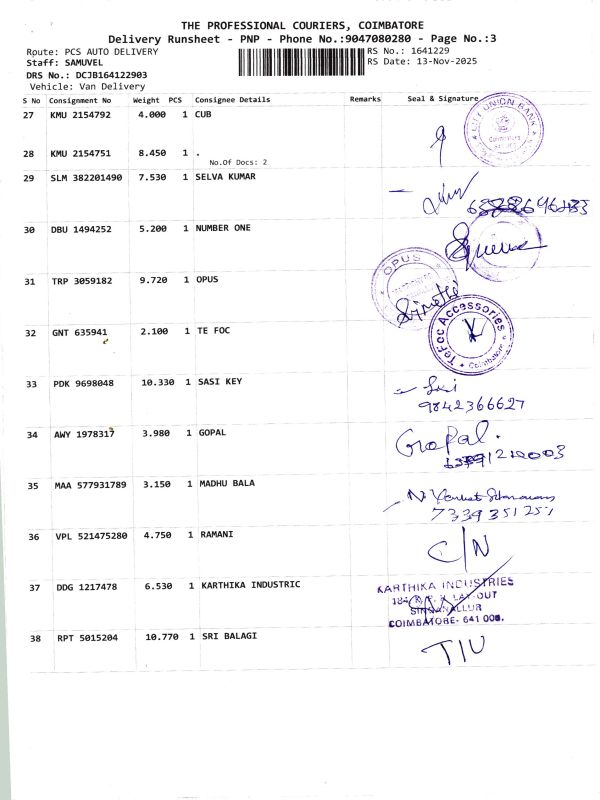 THE PROFESSIONAL COURIERS, COIMBATORE
Delivery Runsheet - PNP - Phone No.:9047080280 - Page No.:3
Rpute: PCS AUTO DELIVERY
RS No.: 1641229
Staff: SAMUVEL
RS Date: 13-Nov-2025
DRS No.: DCJB164122903
Vehicle: Van Delivery
S No Consignment No Weight PCS Consignee Details Remarks Seal & Signature
27 KMU 2154792 4.000 1 CUB
28 KMU 2154751 8.450 1 .
No.Of Docs: 2
29 SLM 382201490 7.530 1 SELVA KUMAR
30 DBU 1494252 5.200 1 NUMBER ONE
31 TRP 3059182 9.720 1 OPUS
OPUS
32 GNT 635941 2.100 1 TE FOC
TeFoc Accessories
Coimbatore
33 PDK 9698048 10.330 1 SASI KEY
Sasi
9842366627
34 AWY 1978317 3.980 1 GOPAL
Gopal.
35 MAA 577931789 3.150 1 MADHU BALA
7339351251
36 VPL 521475280 4.750 1 RAMANI
C/N
37 DDG 1217478 6.530 1 KARTHIKA INDUSTRIC
KARTHIKA INDUSTRIES
LAY-OUT
SINGANALLUR
COIMBATORE- 641 005.
38 RPT 5015204 10.770 1 SRI BALAGI
TIU